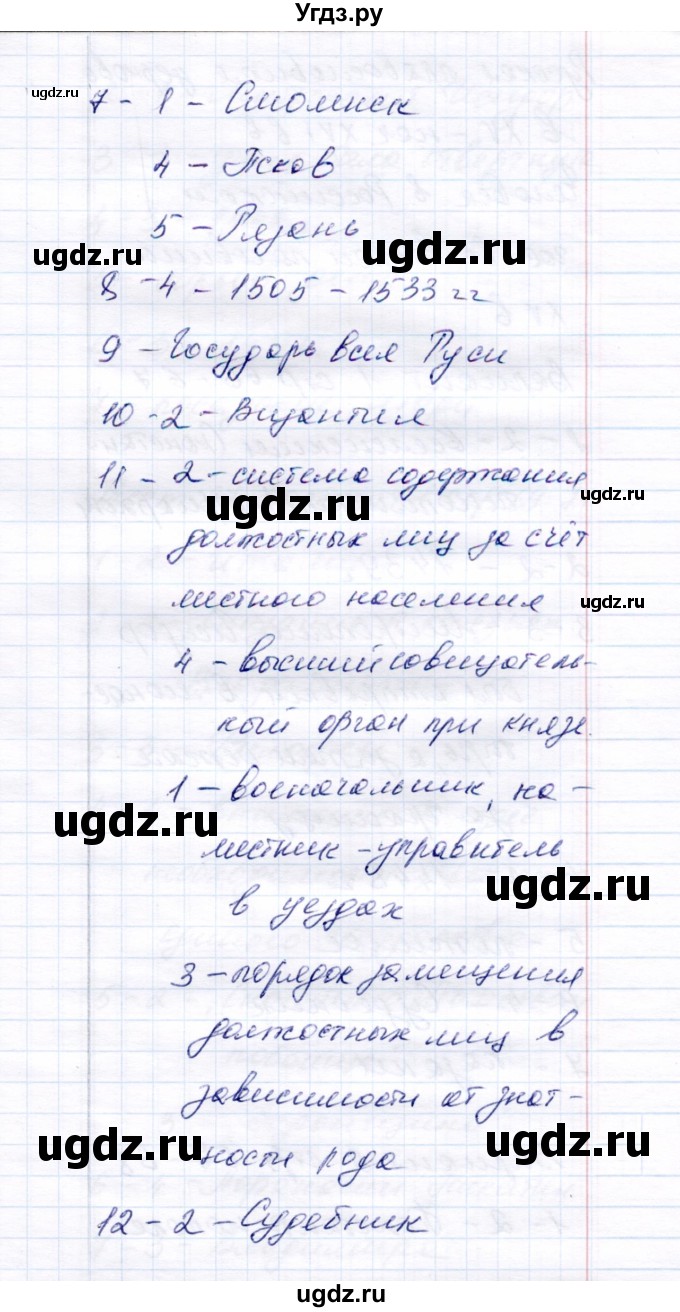 Угдз.ру
7 - 1 - Смоленск
4 - Псков
5 - Рязань
8 - 4 - 1505 - 1533 гг
9 - Государь всея Руси
10 - 2 - Византия
11 - 2 - система содержания
должостных лиц за счёт
местного населения
4 - высший совещатель-
ный орган при князе.
1 - военачальник, на-
местник - управитель
в уездах
3 - порядок замещения
должостных лиц в
зависимости от знат-
ности рода
12 - 2 - Судебник
ugdz.ru
ugdz.ru
ugdz.ru
ugdz.ru
ugdz.ru
ugdz.ru
ugdz.ru
ugdz.ru
ugdz.ru
ugdz.ru
ugdz.ru
ugdz.ru